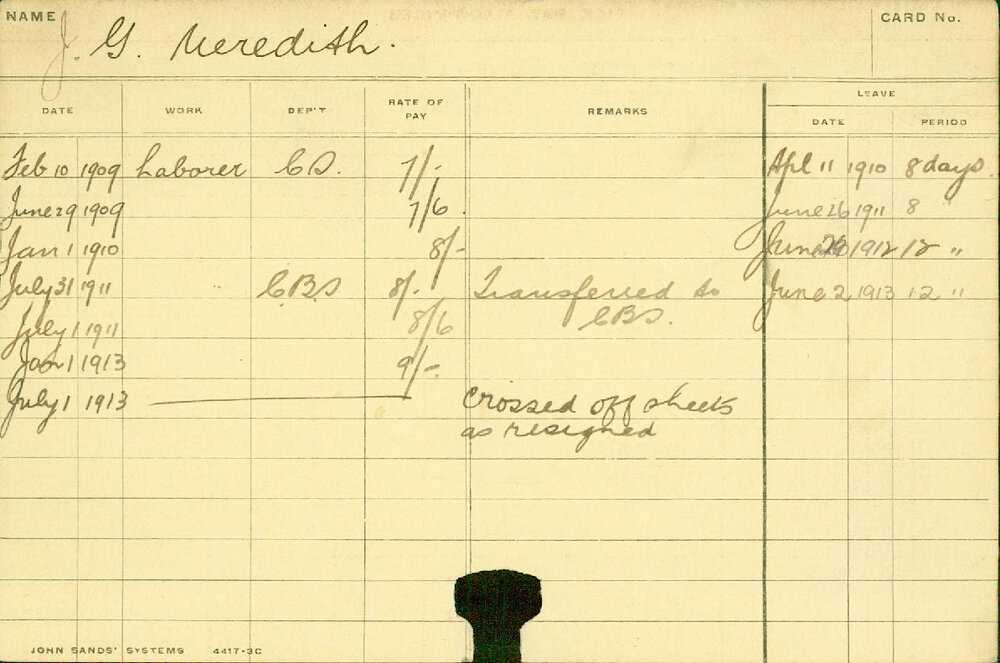 NAME J. G. Meredith. CARD No.
LEAVE
DATE WORK DEP'T RATE OF PAY REMARKS DATE PERIOD
Feb 10 1909 Laborer CS. 7/- Apl 11 1910 8 days.
June 29 1909 7/6. June 26 1911 8 "
Jan 1 1910 8/- June 1912 12 "
July 31 1911 CBS 8/- Transferred to June 2 1913 12 "
July 1 1911 8/6 CBS.
Jan 1 1913 9/-
July 1 1913 Crossed off sheets
as resigned
JOHN SANDS' SYSTEMS 4417-3C